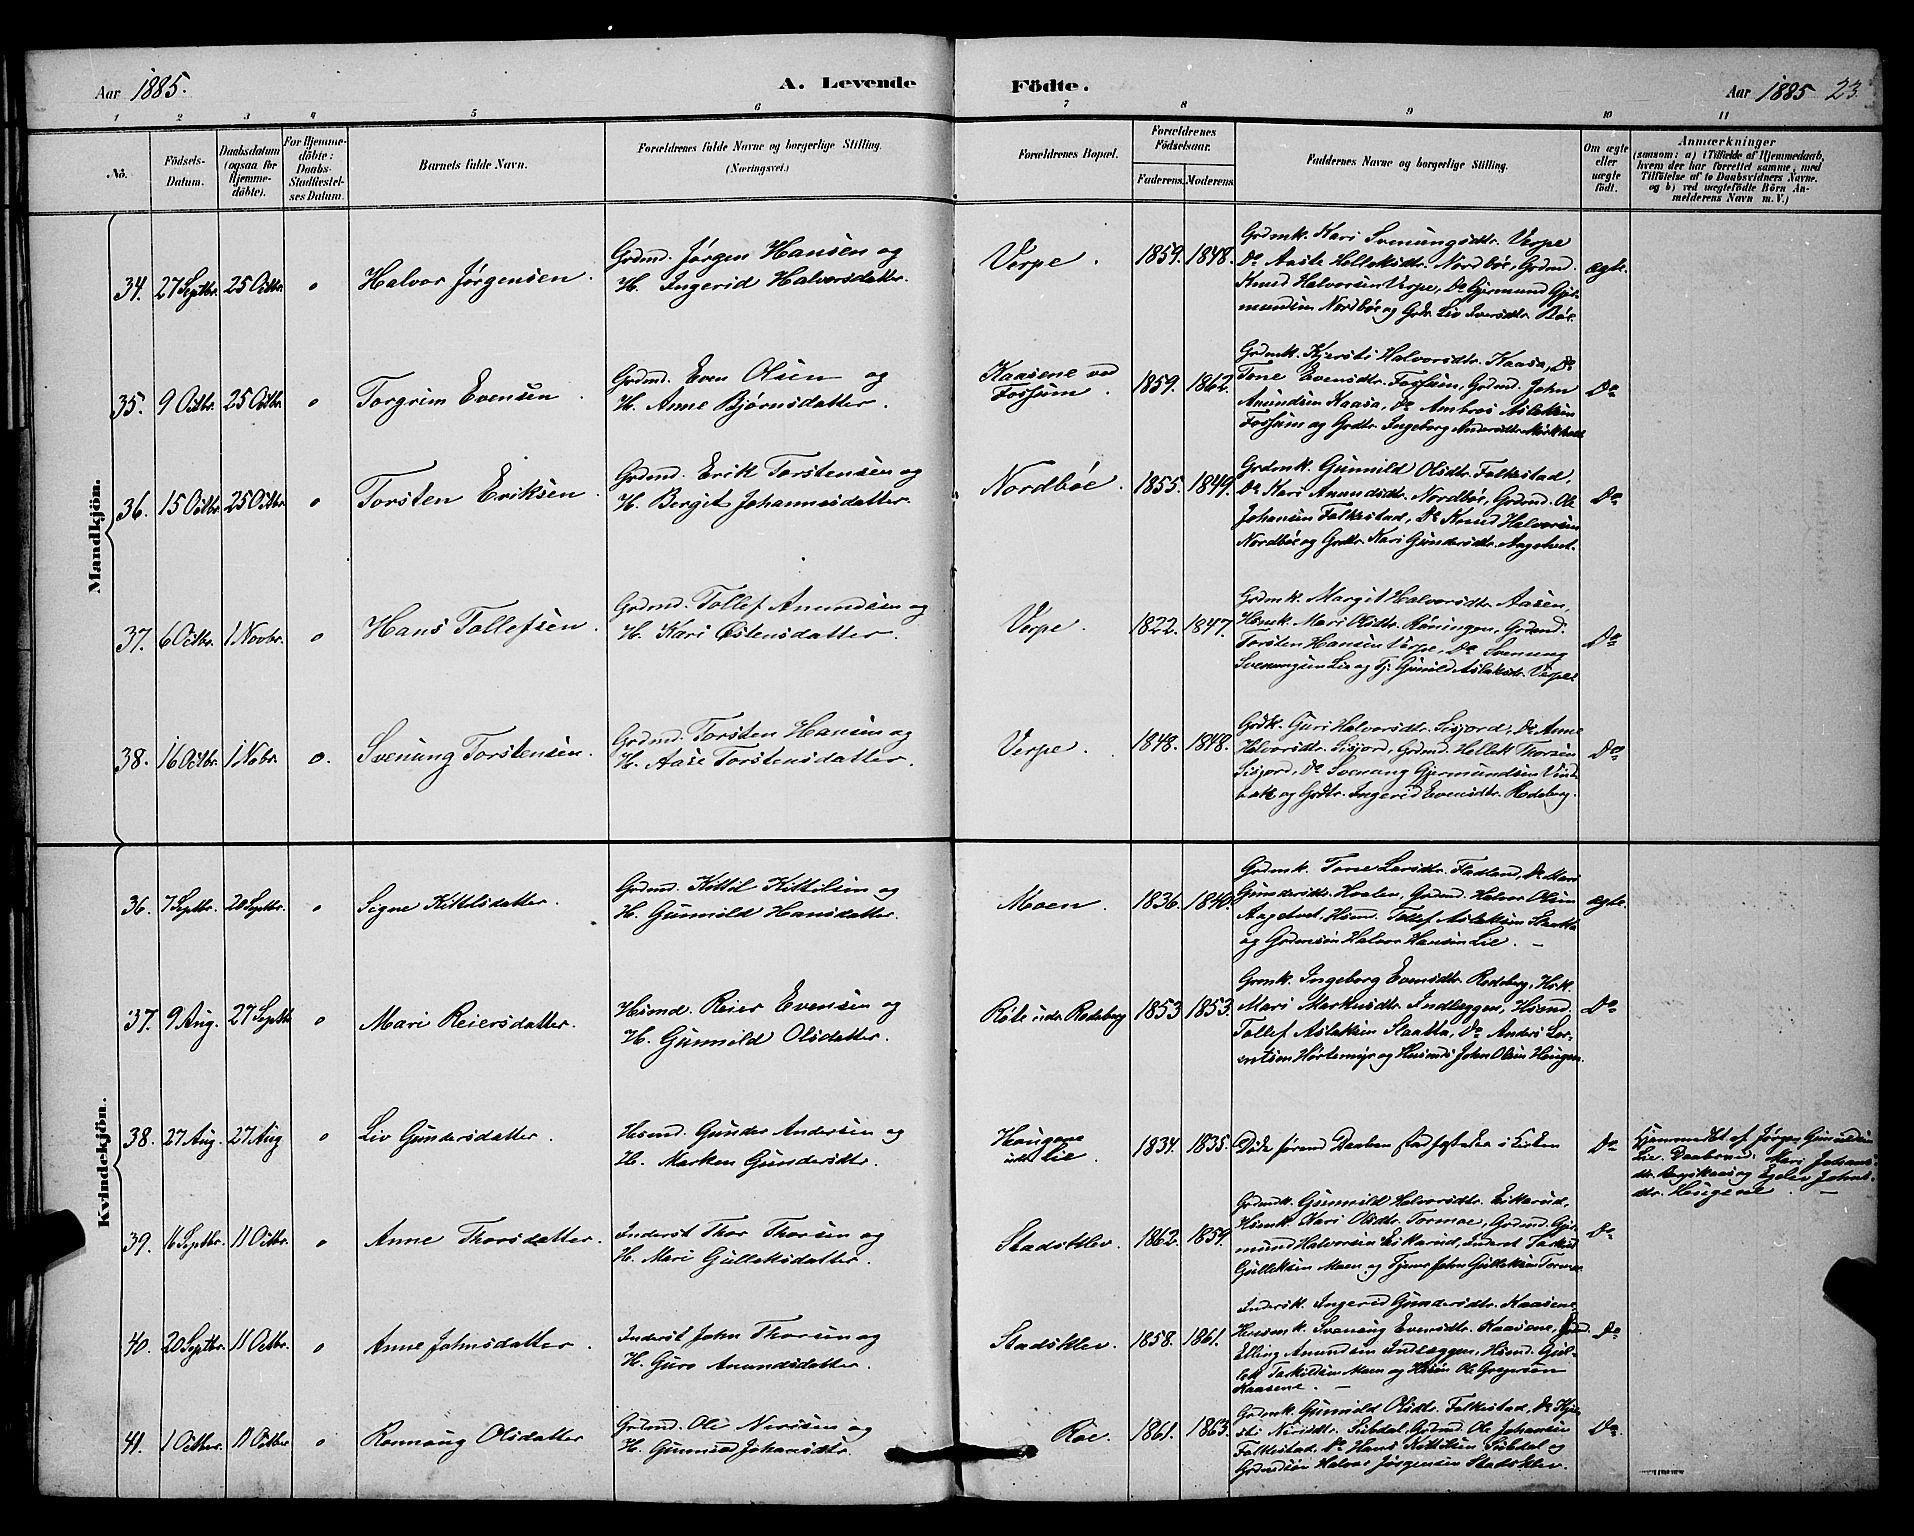 Aar 1885. A. Levende Födte. Aar 1885 23.
1 2 3 4 5 6 7 8 9 10 11
No. Födsels-Datum. Daabsdatum (ogsaa for Hjemme-döbte). For Hjemme-döbte: Daabs-Stadfæstel-ses Datum. Barnets fulde Navn. Forældrenes fulde Navne og borgerlige Stilling. (Næringsvei.) Forældrenes Bopæl. Forældrenes Födselsaar. Faderens. Moderens. Faddernes Navne og borgerlige Stilling. Om ægte eller uægte födt.
Anmærkninger
(saasom: a) i Tilfælde af Hjemmedaab,
hvem der har forrettet samme, med
Tilföielse af to Daabsvidners Navne,
og b) ved uægtefödte Börn An-
melderens Navn m. V.)
Mandkjön.
34. 27 Septbr. 25 Octbr. o Halvor Jørgensen. Grdmd. Jørgen Hansen og
H. Ingerid Halvorsdatter. Verpe. 1859. 1848.
Grdmk. Kari Svenungsdtr. Verpe
Do Aaste Helleksdtr. Nordbøe, Grdmd.
Knud Halvorsen Verpe, Do Gjermund Gjer-
mundsen Nordbøe og Grdtr. Liv Iversdtr. Bøe. ægte.
35. 9 Octbr. 25 Octbr. o Torgrim Evensen Grdmd. Even Olsen og
H. Anne Bjørnsdatter. Kaasene ved
Fossum. 1859. 1862.
Grdmk. Kjersti Halvorsdtr. Kaasa, Do
Tone Evensdtr. Fossum, Grdmd. John
Amundsen Kaasa, Do Ambros Aslaksen
Fossum og Grdtr. Ingeborg Andersdtr. Do
36. 15 Octbr. 25 Octbr. o Torsten Eriksen. Grdmd. Erik Torstensen og
H. Bergit Johannesdatter. Nordbøe. 1855. 1849.
Grdmk. Gunnild Olsdtr. Folkestad,
Do Kari Amundsdtr. Nordbøe, Grdmd. Ole
Johansen Folkestad, Do Knud Halvorsen
Nordbøe og Grdtr. Kari Gundersdtr. Aagetvet. Do
37. 6 Octbr. 1 Novbr. o Hans Tollefsen. Grdmd. Tollef Amundsen og
H. Kari Østensdatter. Verpe. 1822. 1847.
Grdmk. Margit Halvorsdtr. Aasen,
Hsmk. Mari Olsdtr. Røningen, Grdmd.
Torsten Hansen Verpe, Do Svenung
Svenungsen Lie og Tj. Gunild Aslaksdtr. Verpe. Do
38. 16 Octbr. 1 Nobr. o. Svenung Torstensen. Grdmd. Torsten Hansen og
H. Aase Torstensdatter. Verpe. 1848. 1848.
Grdk. Guri Halvorsdtr. Sisjord, Do Anne
Halvorsdtr. Sisjord, Grdmd. Hellek Thorsen
Sisjord, Do Svenung Gjermundsen Vind-
bæk og Grdtr. Ingerid Evensdtr. Rodeberg. Do
Kvindekjön.
36. 7 Septbr. 20 Septbr. o Signe Kittilsdatter. Grdmd. Kittil Kittilsen og
H. Gunnild Hansdatter. Moen. 1836. 1840.
Grdmk. Tone Larsdtr. Fladland, Do Mari
Gundersdtr. Hvalen, Grdmd. Halvor Olsen
Aagetvet, Hsmd. Tollef Aslaksen Slaatta
og Grdmsøn Halvor Hansen Lie. — ægte.
37. 9 Aug. 27 Septbr. o Mari Reiersdatter. Husmd. Reier Evensen og
H. Gunnild Olsdatter. Røte udr. Rodeberg 1853 1853.
Grmk. Ingeborg Evensdtr. Rodeberg, Hsk.
Mari Markusdtr. Indlæggen, Hsmd.
Tollef Aslaksen Slaatta, Do Anders Lor-
entsen Hørtemyr og Husmd. John Olsen Haugen. Do
38. 27 Aug. 27 Aug o Liv Gundersdatter. Husmd. Gunder Andersen og
H. Marken Gundersdtr. Haugene
udr. Lie. 1834. 1835. Døde førend Daaben stadfæstedes i Kirken Do
Hjemmedøbt af Jørgen Gunuldsen
Lie. Daabsvid: Mari Johans-
dtr. og Johns-
dtr. Haugene. —
39. 16 Septbr. 11 Octbr. o Anne Thorsdatter. Inderst Thor Thorsen og
H. Mari Gulleksdatter. Stadsklev. 1862. 1859.
Grdmk. Gunnild Halvorsdtr. Eikarud,
Hsmk. Kari Olsdtr. Tormoe, Grdmd. Gjer-
mund Halvorsen Eikarud, Inderst Tarkild
Gulleksen Moen og Tjener John Gulleksen Tormoe Do
40. 20 Septbr. 11 Octbr. o Anne Johnsdatter. Inderst John Thorsen og
H. Guro Amundsdatter. Stadsklev. 1858. 1861.
Indersk. Ingerid Gundersdtr. Kaasene,
Husmk. Svanaug Evensdtr. Kaasene, Hsmd.
Elling Amundsen Indlæggen, Hsmd. Gul-
lek Tarkildsen Moen og Hssøn Ole Gregersen
Kaasene. — Do
41. 1 Octbr. 11 Octbr o Ronnaug Olsdatter Grdmd. Ole Nirisen og
H. Gunnild Johansdtr. Roe. 1861. 1863.
Grdmk. Gunnild Olsdtr. Folkestad, Do Kjer-
sti Nirisdtr. Sübdal, Grdmd. Ole Johansen
Folkestad, Do Hans Kittilsen Sübdal og
Grdmdsøn Halvor Jørgensen Stadsklev. Do